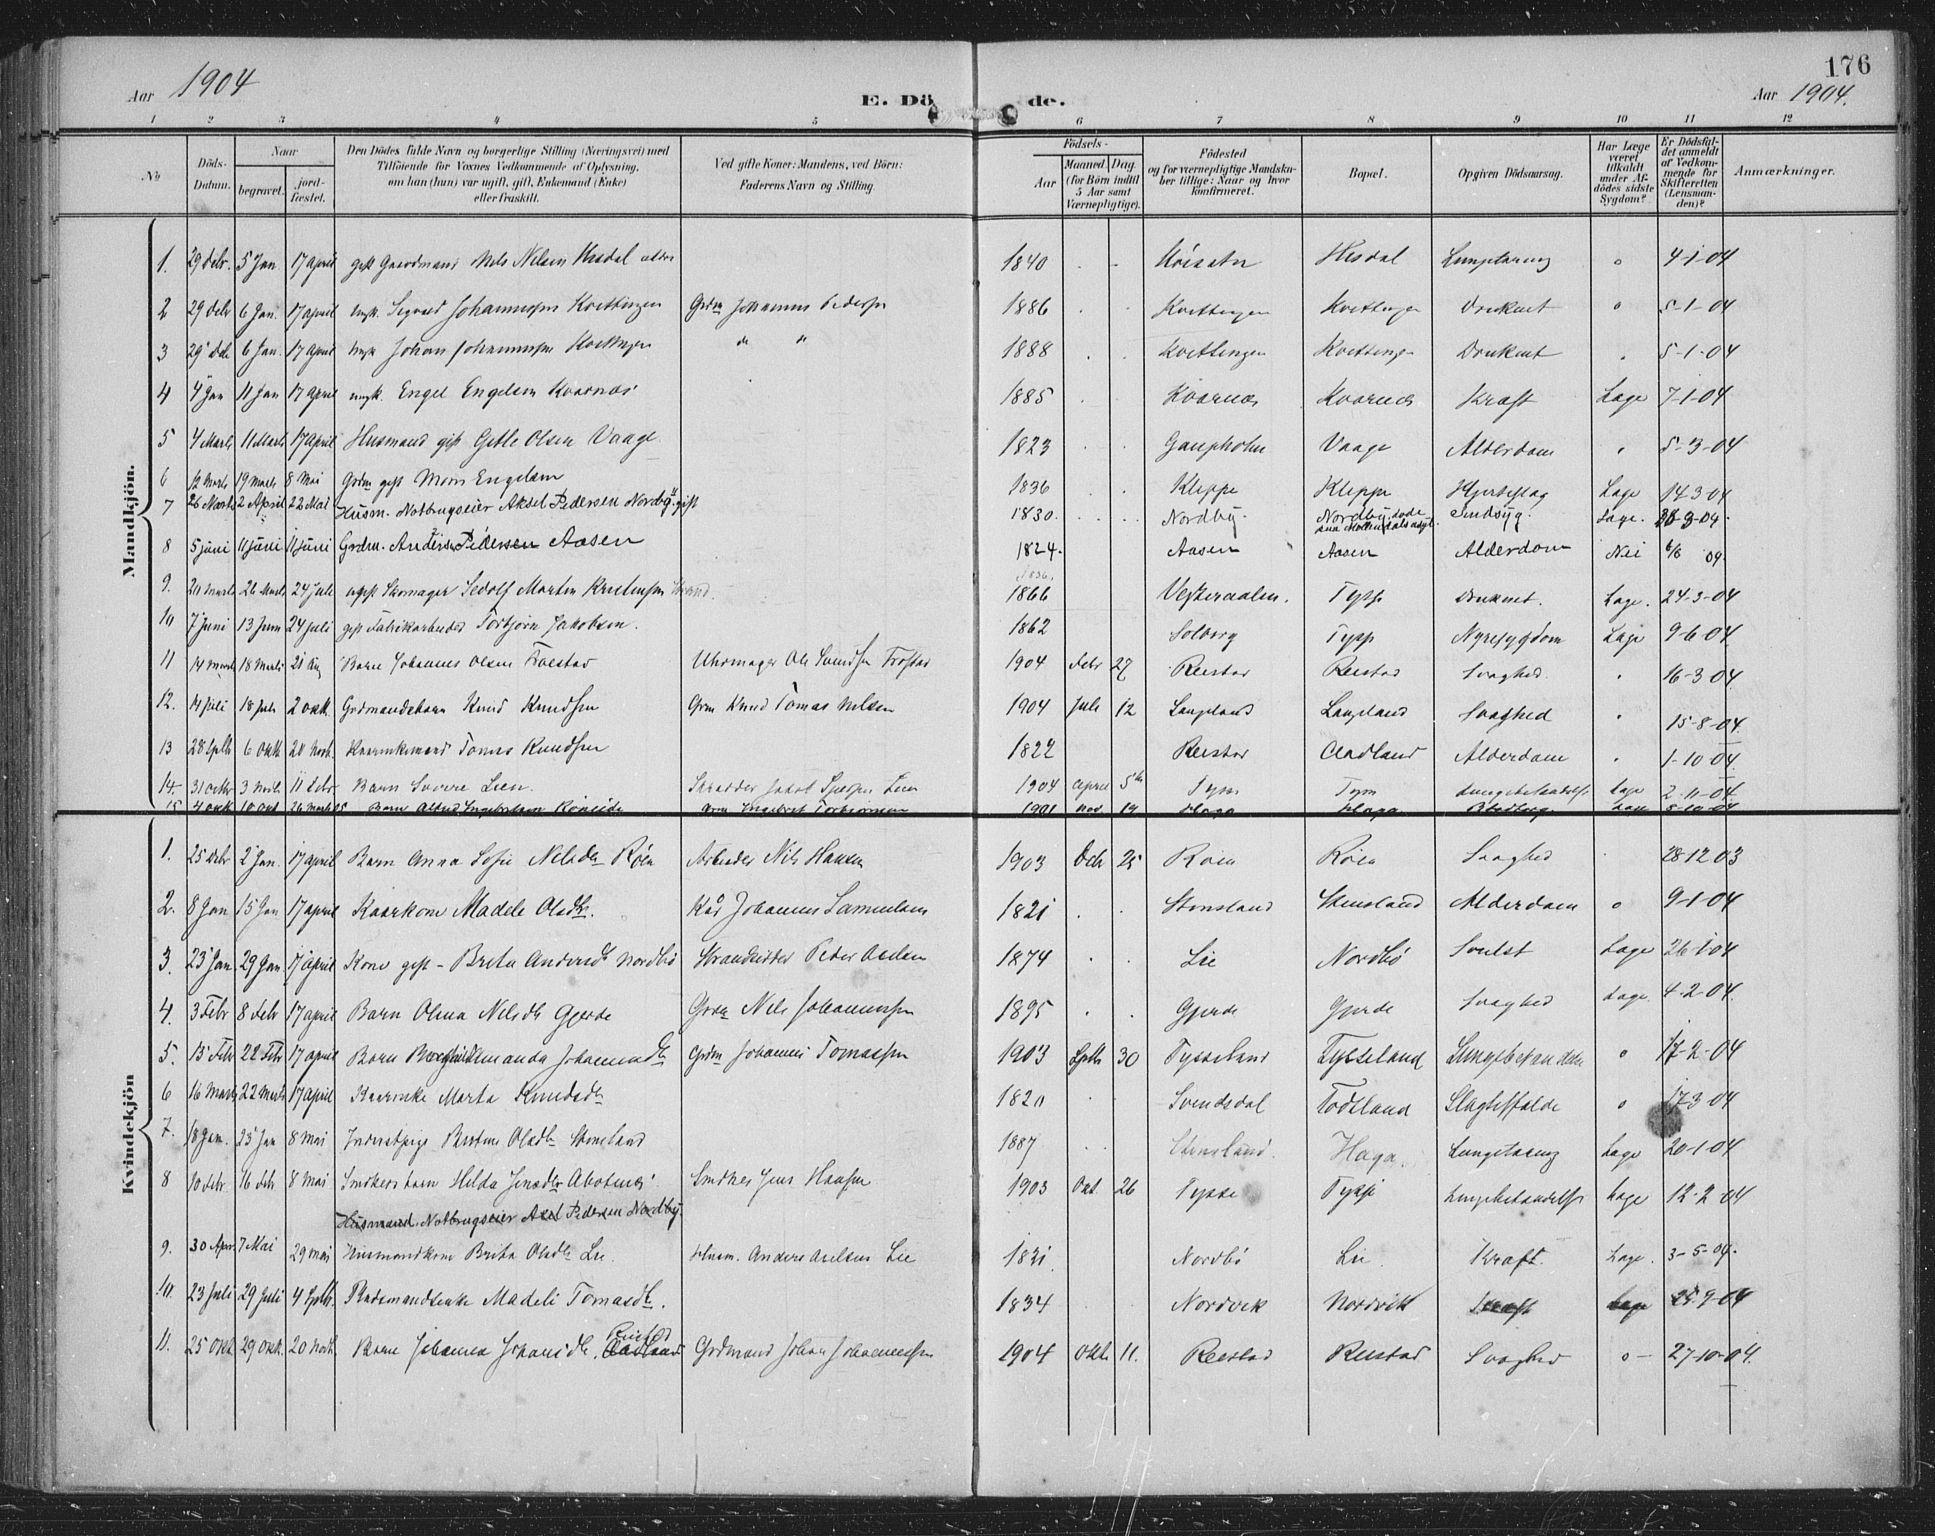 176
Aar 1904
E. Dö de.
Aar 1904.
1 2 3 4 5 6 7 8 9 10 11 12
No
Döds-Datum.
Naar
begravet.
jord-fæstet.
Den Dödes fulde Navn og borgerlige Stilling (Næringsvei) med
Tilföiende for Voxnes Vedkommende af Oplysning,
om han (hun) var ugift, gift, Enkemand (Enke)
eller fraskilt.
Ved gifte Koner: Mandens, ved Börn:
Faderens Navn og Stilling.
Födsels-
Aar
Maaned. Dag.
(for Börn indtil
5 Aar samt
Værnepligtige).
Födested
og for værnepligtige Mandskaber tillige: Naar og hvor
konfirmeret.
Bopæl.
Opgiven Dödsaarsag.
Har Læge
været
tilkaldt
under Afdödes sidste
Sygdom?
Er Dödsfaldet anmeldt
af Vedkommende for
Skifteretten
(Lensmanden)?
Anmærkninger.
Mandkjön.
1. 29 Debr. 5 Jan 17 april gift Gaardmand Nels Nelsen Hisdal 1840 Hisdal 4-1-04
2 29 Debr 6 Jan. 17 april ugk. Sigvard Johannessen Kvittingen Grdm Johannes Pedersen 1886 Kvittingen Kvittingen Druknet o 5-1-04
3 29 Debr 6 Jan. 17 april ugk Johan Johannessen Kvittingen " " 1888 Kvittingen Kvittingen Druknet 5-1-04
4 4 Jan 11 Jan 17 april ungk. Engel Engelsen Kvarnæs 1885 Kvarnæs Kvarnæs Kræft Læge 7-1-04
5 4 Marts 11 Marts 17 april Husmand gift Gitle Olsen Vaage 1823 Vaage Alderdom 5-3-04
6 12 Marts 19 Marts 8 Mai Grdm gift Mons Engelsen 1836 Kleppe Kleppe Hjerteslag Læge 14-3-04
7 26 Marts 2 April 22 Mai Husm. Notbrugseier Aksel Pedersen Nordby - gift 1830. Nordby Nordby, döde paa Möllendals asyl. Sindsyg. Læge.
8 5 juni 11 juni 11 juni Grdm. Anders Pedersen Aasen 1824. Aasen Aasen Alderdom Nei 6/6 04.
9. 20 Marts 26 Marts 24 juli ugift Skomager Sedolf Martin Kristensen Strand. 1866 Vesteraalen. Tysse Druknet. Læge. 24-3-04
10 7 Juni 13 Juni 24 Juli gift Fabrikarbeider Torbjørn Jakobsen. 1862 Solberg Tysse Nyresygdom Læge 9-6-04
11 14 Marts 18 Marts 21 Barn Johannes Olsen Frøstad Uhrmager Ole Svendsen Frøstad 1904 Febr 27 Reistad Reistad Svaghed. 16-3-04
12. 14 Juli 18 Juli 2 okt. Grdmandsbarn Knud Knudsen Grm Knud Tomas Nilsen 1904 Juli 12 Langeland Langeland Svaghed 15-8-04.
13 28 Septb 6 Okt. 20 Novb. Kaarenkemand Tomas Knudsen 1822 Reistad Aadland Alderdom 1-10-04.
14 31 oktbr 3 Novb. 11 Debr. Barn Sverre Lien. Skrædder Jakob Lien 1904 april 5te Tysse Tysse Lungebetændelse Læge 2-11-04
15 4 okt 10 okt 26 Marts 05 Barn Alfred Ingebretsen Röiseide Grm Ingebret Torbjörnsen 1901 Nov. 19 Haga Haga Læge 8-10-04
Kvindekjön
1. 25 Debr 2 Jan. 17 april Barn Anna Sofie Nilsdtr Röen Arbeider Nils Hansen 1903 Debr 25 Röen Röen Svaghed 28-12 03
2. 8 Jan 15 Jan 17 april Kaarkone Madele Olsdtr. Kår Johannes Samuelsen 1821 Stensland Stensland Alderdom o 9-1-04
3. 23 Jan. 29 Jan. 17 april Kone gift - Brita Andersdtr Nordbö Strandsidder Peder Axelsen 1874 Lie Nordbö Svulst Læge 26-1-04
4. 3 Febr 8 Febr 17 april Barn Olina Nilsdtr Gjerde Grdm Nils Johannessen 1895 Gjerde Gjerde Svaghed Læge. 4-2-04.
5. 15 Febr 22 Febr 17 april Barn Borghild Amanda Johannesdtr Grdm Johannes Tomassen 1903 Septb 30 Tysseland Tysseland Lungebetændelse o 17-2-04
6 16 Marts 22 Marts 17 april Kaarenke Marta Knudsdtr 1820 Svendsdal Todtland Slagtilfælde o 17-3-04
7. 18 Jan. 25 Jan 8 Mai Inderstpige Kristine Olsdtr Stensland 1887 Stensland. Haga. Lungetæring Læge 20-1-04
8 10 Febr. 16 Febr 8 Mai Snedkersbarn Hilda Jensdtr Abotnes Snedker Jens Hansen 1903 Okt 26 Tysse Tysse Lungebetændelse Læge 12-2-04
Husmand. Notbrugseier Axel Pedersen Nordby.
9. 30 Apr. 7 Mai 29 mai Husmandkone Brita Olsdtr Lie. Husm. Anders Axelsen Lie 1831. Nordbö Lie Kræft. Læge. 3-5-04.
10. 23 Juli 29 Juli 4 Septb. Madeli Tomasdtr. 1834 Nordvik Nordvik Kræft Læge 25-9-04
11. 25 Okt 29 Okt. 20 Novb. Barn Johanna Johansdtr. Reistad Aadland Grdmand Johan Johannessen 1904 Oktb 11. Reistad Reistad Svaghed o - 27-10-04.